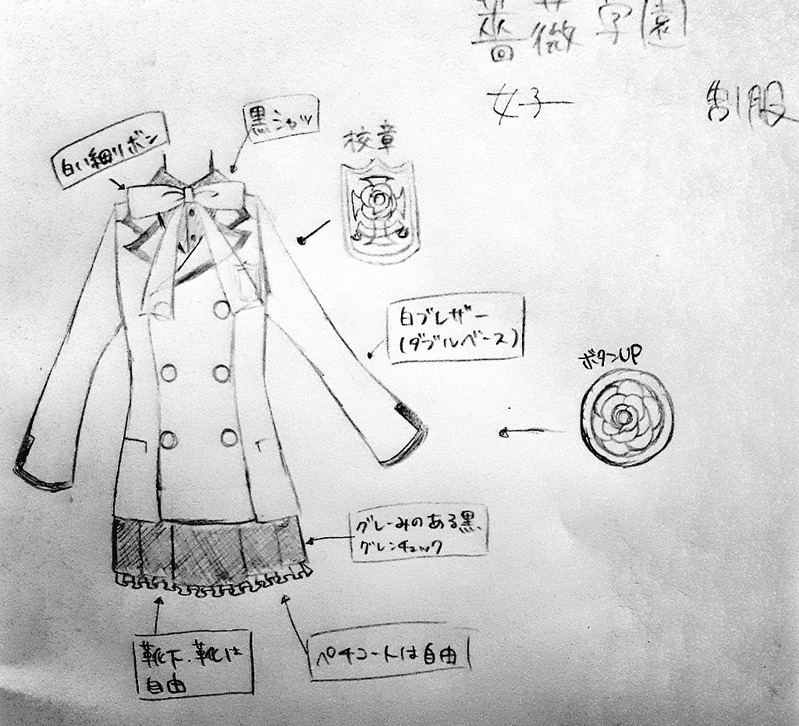 薔薇学園
女子 制服
黒シャツ
白い細リボン
校章
白ブレザー
(ダブルベース)
ボタンUP
グレーみのある黒、
グレンチェック
靴下、靴は
自由
ペチコートは自由